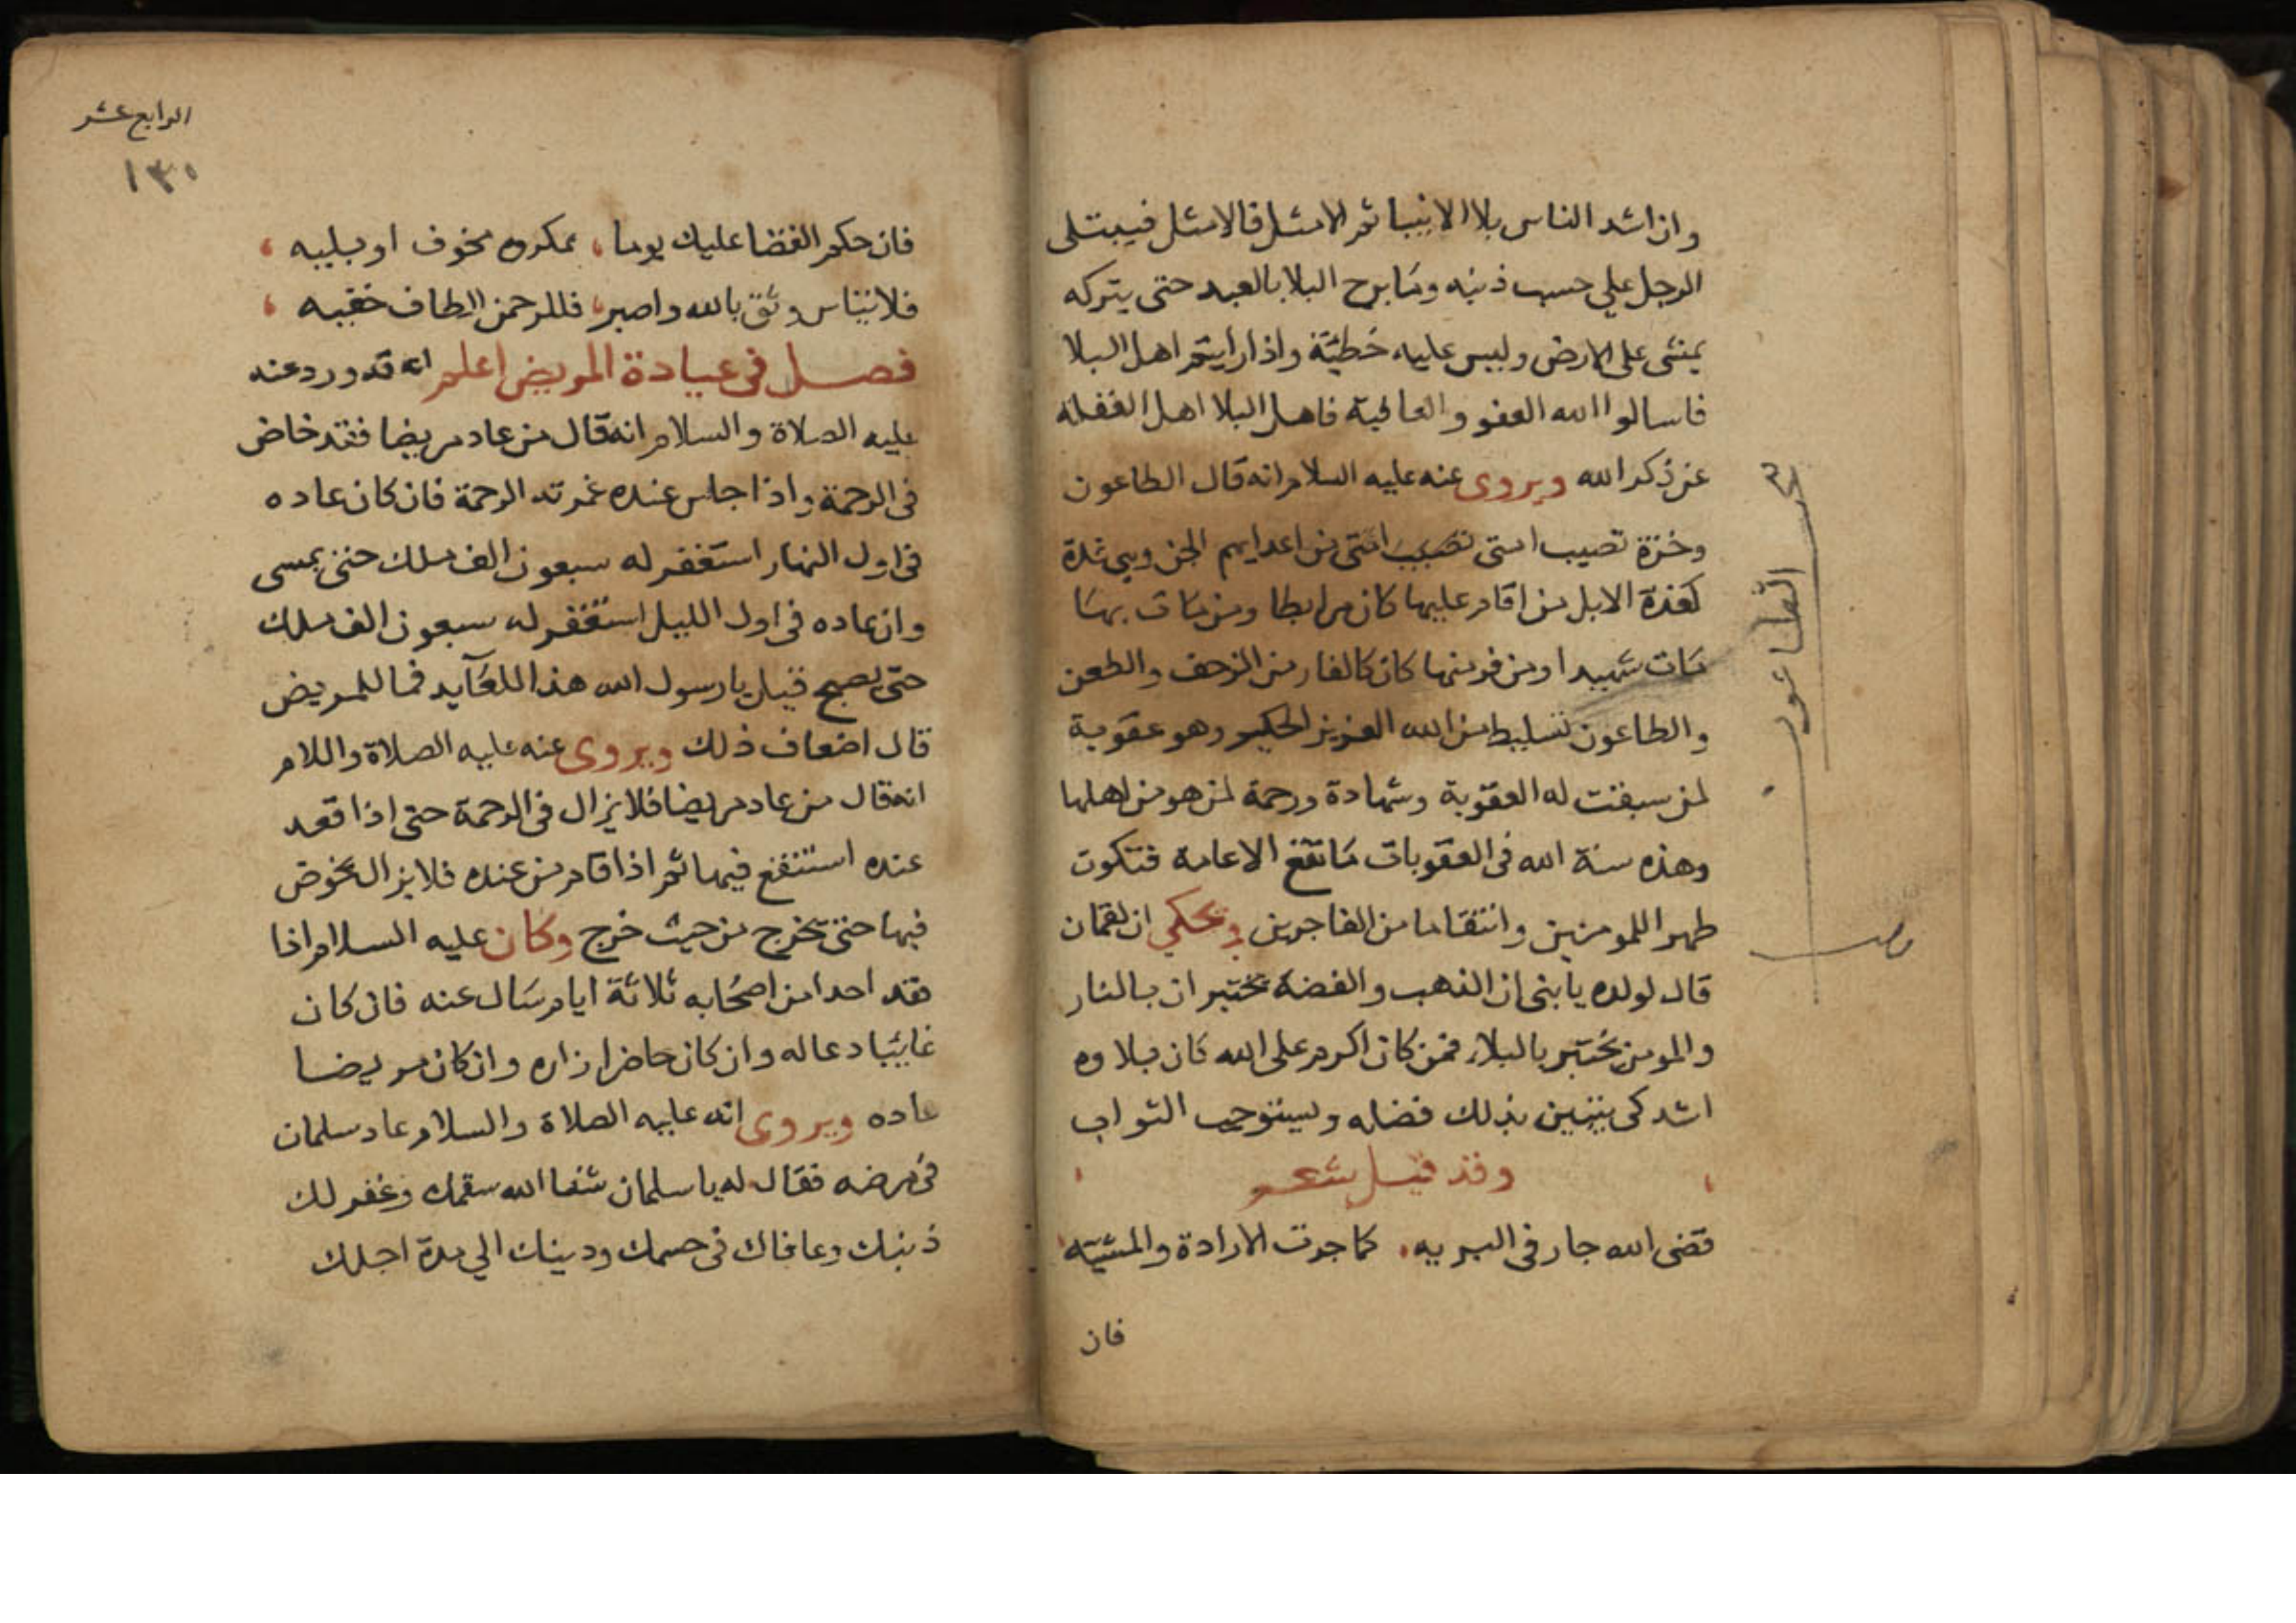 وان اشد الناس بلا الانبيا ثم الامثل فالامثل فيبتلى
الرجل علي حسب ذنبه ومابرح البلا بالعبد حتى يتركه
يمشى على الارض وليس عليه خطيئة واذا رايتم اهل البلا
فاسالوا الله العفو والعافية فاهل البلا اهل الغفلة
عن ذكر الله ويروى عنه عليه السلام انه قال الطاعون
وخزة تصيب امتى من اعدايهم الجن وهي غدة
كغدة الابل من اقام عليها كان مرابطا ومن مات بها
مات شهيدا ومن فر منها كان كالفار من الزحف والطعن
والطاعون تسليط من الله العزيز الحكيم وهو عقوبة
لمن سبقت له العقوبة وشهادة ورحمة لمن هو من اهلها
وهذه سنة الله فى العقوبات ما تقع الا عامة فتكون
طهر اللمومنين وانتقاما من الفاجرين ويحكي ان لقمان
قال لولده يا بنى ان الذهب والفضة يختبر ان بالنار
والمومن يختبر بالبلاء فمن كان اكرم على الله كان بلاوه
اشد كى يتبين بذلك فضله ويستوجب الثواب
وقد قيل شعر
قضى الله جار فى البريه كما جرت الارادة والمشيه
فان
الطاعون
الرابع عشر
١٣٠
فان حكم القضا عليك يوما بمكروه مخوف او بليه
فلا تيأس وثق بالله واصبر فللرحمن الطاف خفيه
فصل فى عيادة المريض اعلم انه قد ورد عنه
عليه الصلاة والسلام انه قال من عاد مريضا فقد خاض
فى الرحمة واذا جلس عنده غمرته الرحمة فان كان عاده
فى اول النهار استغفر له سبعون الف ملك حتى يمسى
وان عاده فى اول الليل استغفر له سبعون الف ملك
حتى يصبح قيل يا رسول الله هذا للعايد فما للمريض
قال اضعاف ذلك ويروى عنه عليه الصلاة واللام
انه قال من عاد مريضا فلا يزال فى الرحمة حتى اذا قعد
عنده استنقع فيها ثم اذا قام من عنده فلا يزال يخوض
فيها حتى يخرج من حيث خرج وكان عليه السلام اذا
فقد احدا من اصحابه ثلاثة ايام سال عنه فان كان
غايبا دعا له وان كان حاضرا زاره وان كان مريضا
عاده ويروى انه عليه الصلاة والسلام عاد سلمان
فى مرضه فقال له يا سلمان شفا الله سقمك وغفر لك
ذنبك وعافاك فى جسمك ودينك الي مدة اجلك